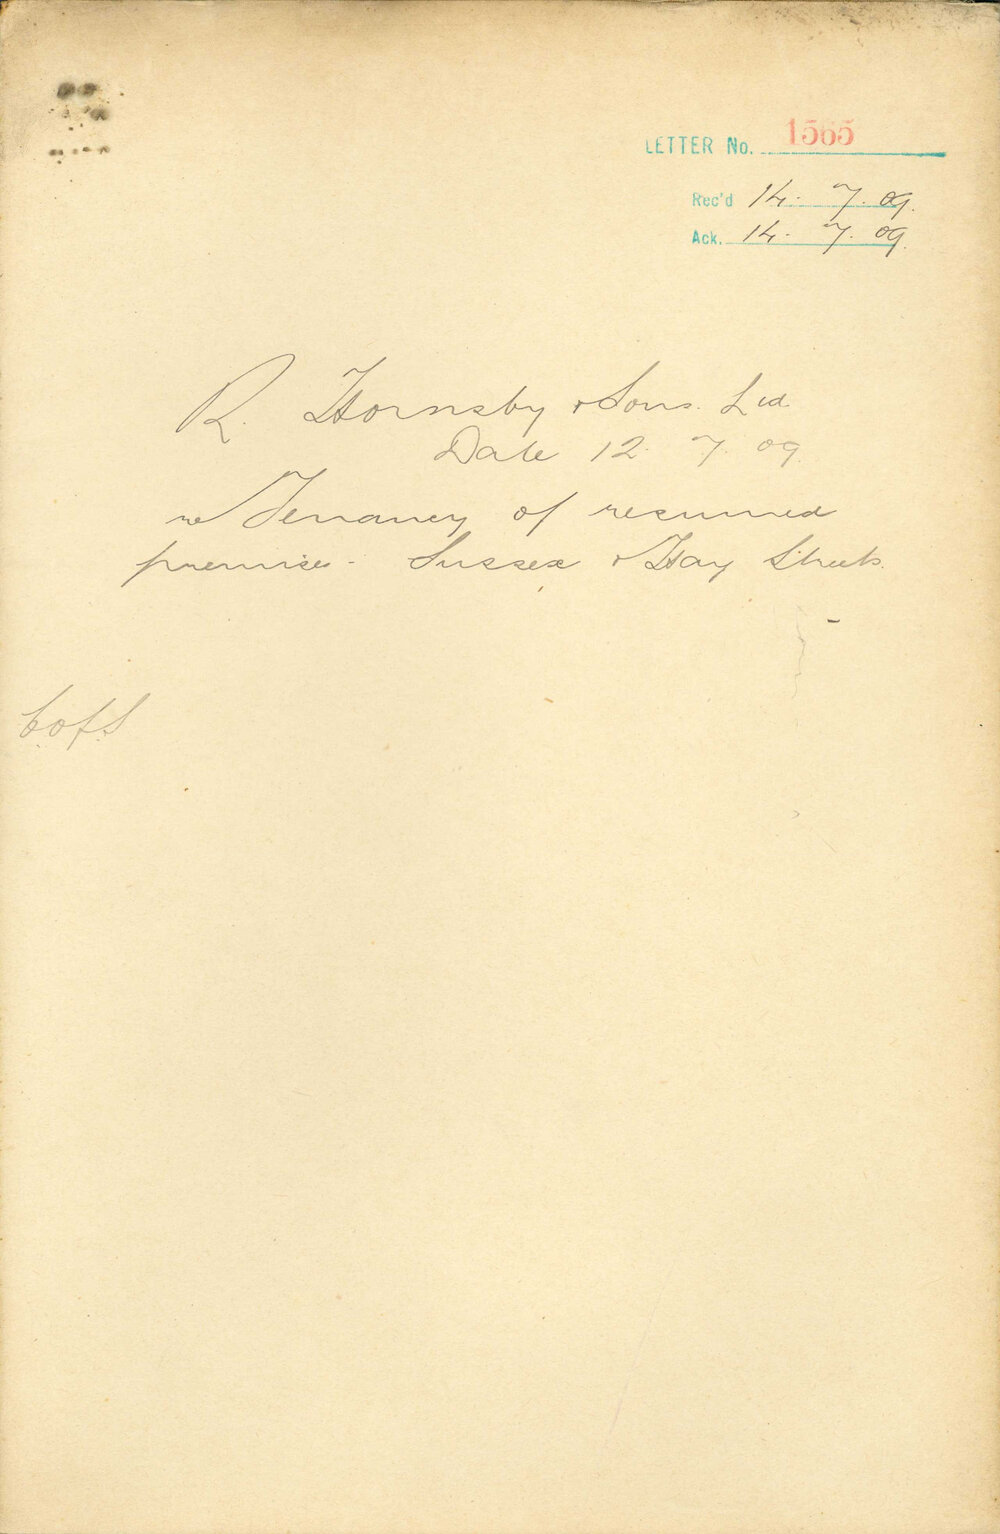 LETTER No. 1565
Rec'd 14. 7. 09.
Ack. 14. 7. 09.
R. Hornsby & Sons. Ltd
Date 12. 7. 09.
re Tenancy of resumed
premises. Sussex & Hay Streets.
C of S